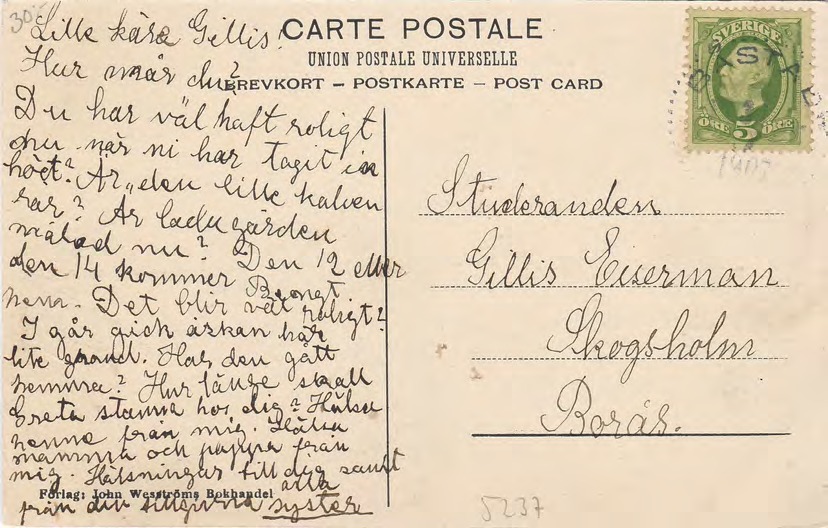 30:-
CARTE POSTALE
UNION POSTALE UNIVERSELLE
BREVKORT – POSTKARTE – POST CARD
Lille kära Gillis!
Hur mår du?
Du har väl haft roligt
nu när ni har tagit in
höet? Är den lille kalven
rar? Är ladugården
målad nu? Den 12 eller
den 14 kommer Bengt
hem. Det blir väl roligt?
I går gick åskan här
lite grand. Har den gått
hemma? Hur länge skall
Greta stanna hos dig? Hälsa
henne från mig. Hälsa
mamma och pappa från
mig. Hälsningar till dig samt
alla
från din tillgivna syster
Förlag: John Wesströms Bokhandel
SVERIGE
ÖRE 5 ÖRE
BÅSTAD
Studeranden
Gillis Eiserman
Skogsholm
Borås.
5237